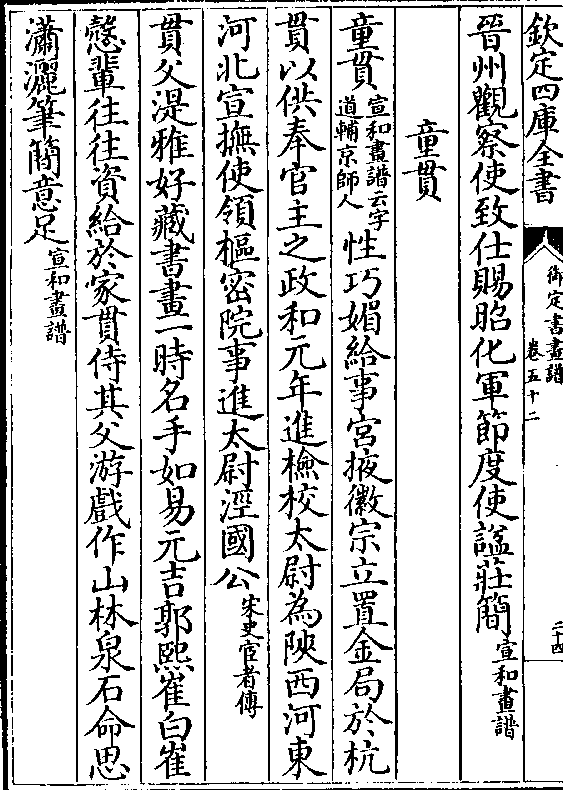 欽定四庫全書
御定書畫譜
卷五十二
二十四
晉州觀察使致仕賜昭化軍節度使諡莊簡宣和畫譜
童貫
童貫宣和畫譜云字道輔京師人性巧媚給事宮掖徽宗立置金局於杭
貫以供奉官主之政和元年進檢校太尉為陝西河東
河北宣撫使領樞密院事進太尉涇國公宋史宦者傳
貫父湜雅好藏書畫一時名手如易元吉郭熙崔白崔
愨輩往往資給於家貫侍其父游戲作山林泉石命思
瀟灑筆簡意足宣和畫譜